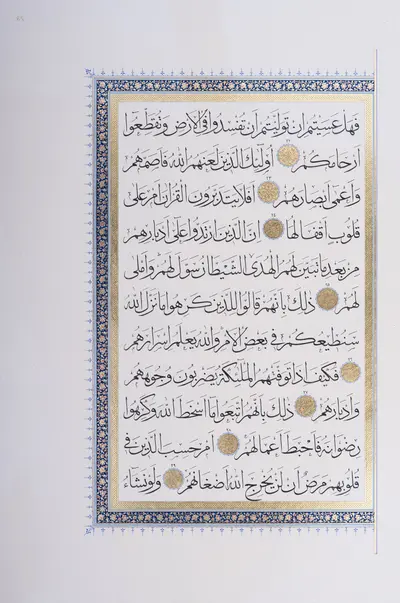 فهل عسيتم ان توليتم ان تفسدوا في الارض وتقطعوا
ارحامكم ٢٢ اولئك الذين لعنهم الله فاصمهم
واعمى ابصارهم ٢٣ افلا يتدبرون القران ام على
قلوب اقفالها ٢٤ ان الذين ارتدوا على ادبارهم
من بعد ما تبين لهم الهدى الشيطان سول لهم واملى
لهم ٢٥ ذلك بانهم قالوا للذين كرهوا ما نزل الله
سنطيعكم في بعض الامر والله يعلم اسرارهم
٢٦ فكيف اذا توفتهم الملئكة يضربون وجوههم
وادبارهم ٢٧ ذلك بانهم اتبعوا ما اسخط الله وكرهوا
رضوانه فاحبط اعمالهم ٢٨ ام حسب الذين في
قلوبهم مرض ان لن يخرج الله اضغانهم ٢٩ ولو نشاء